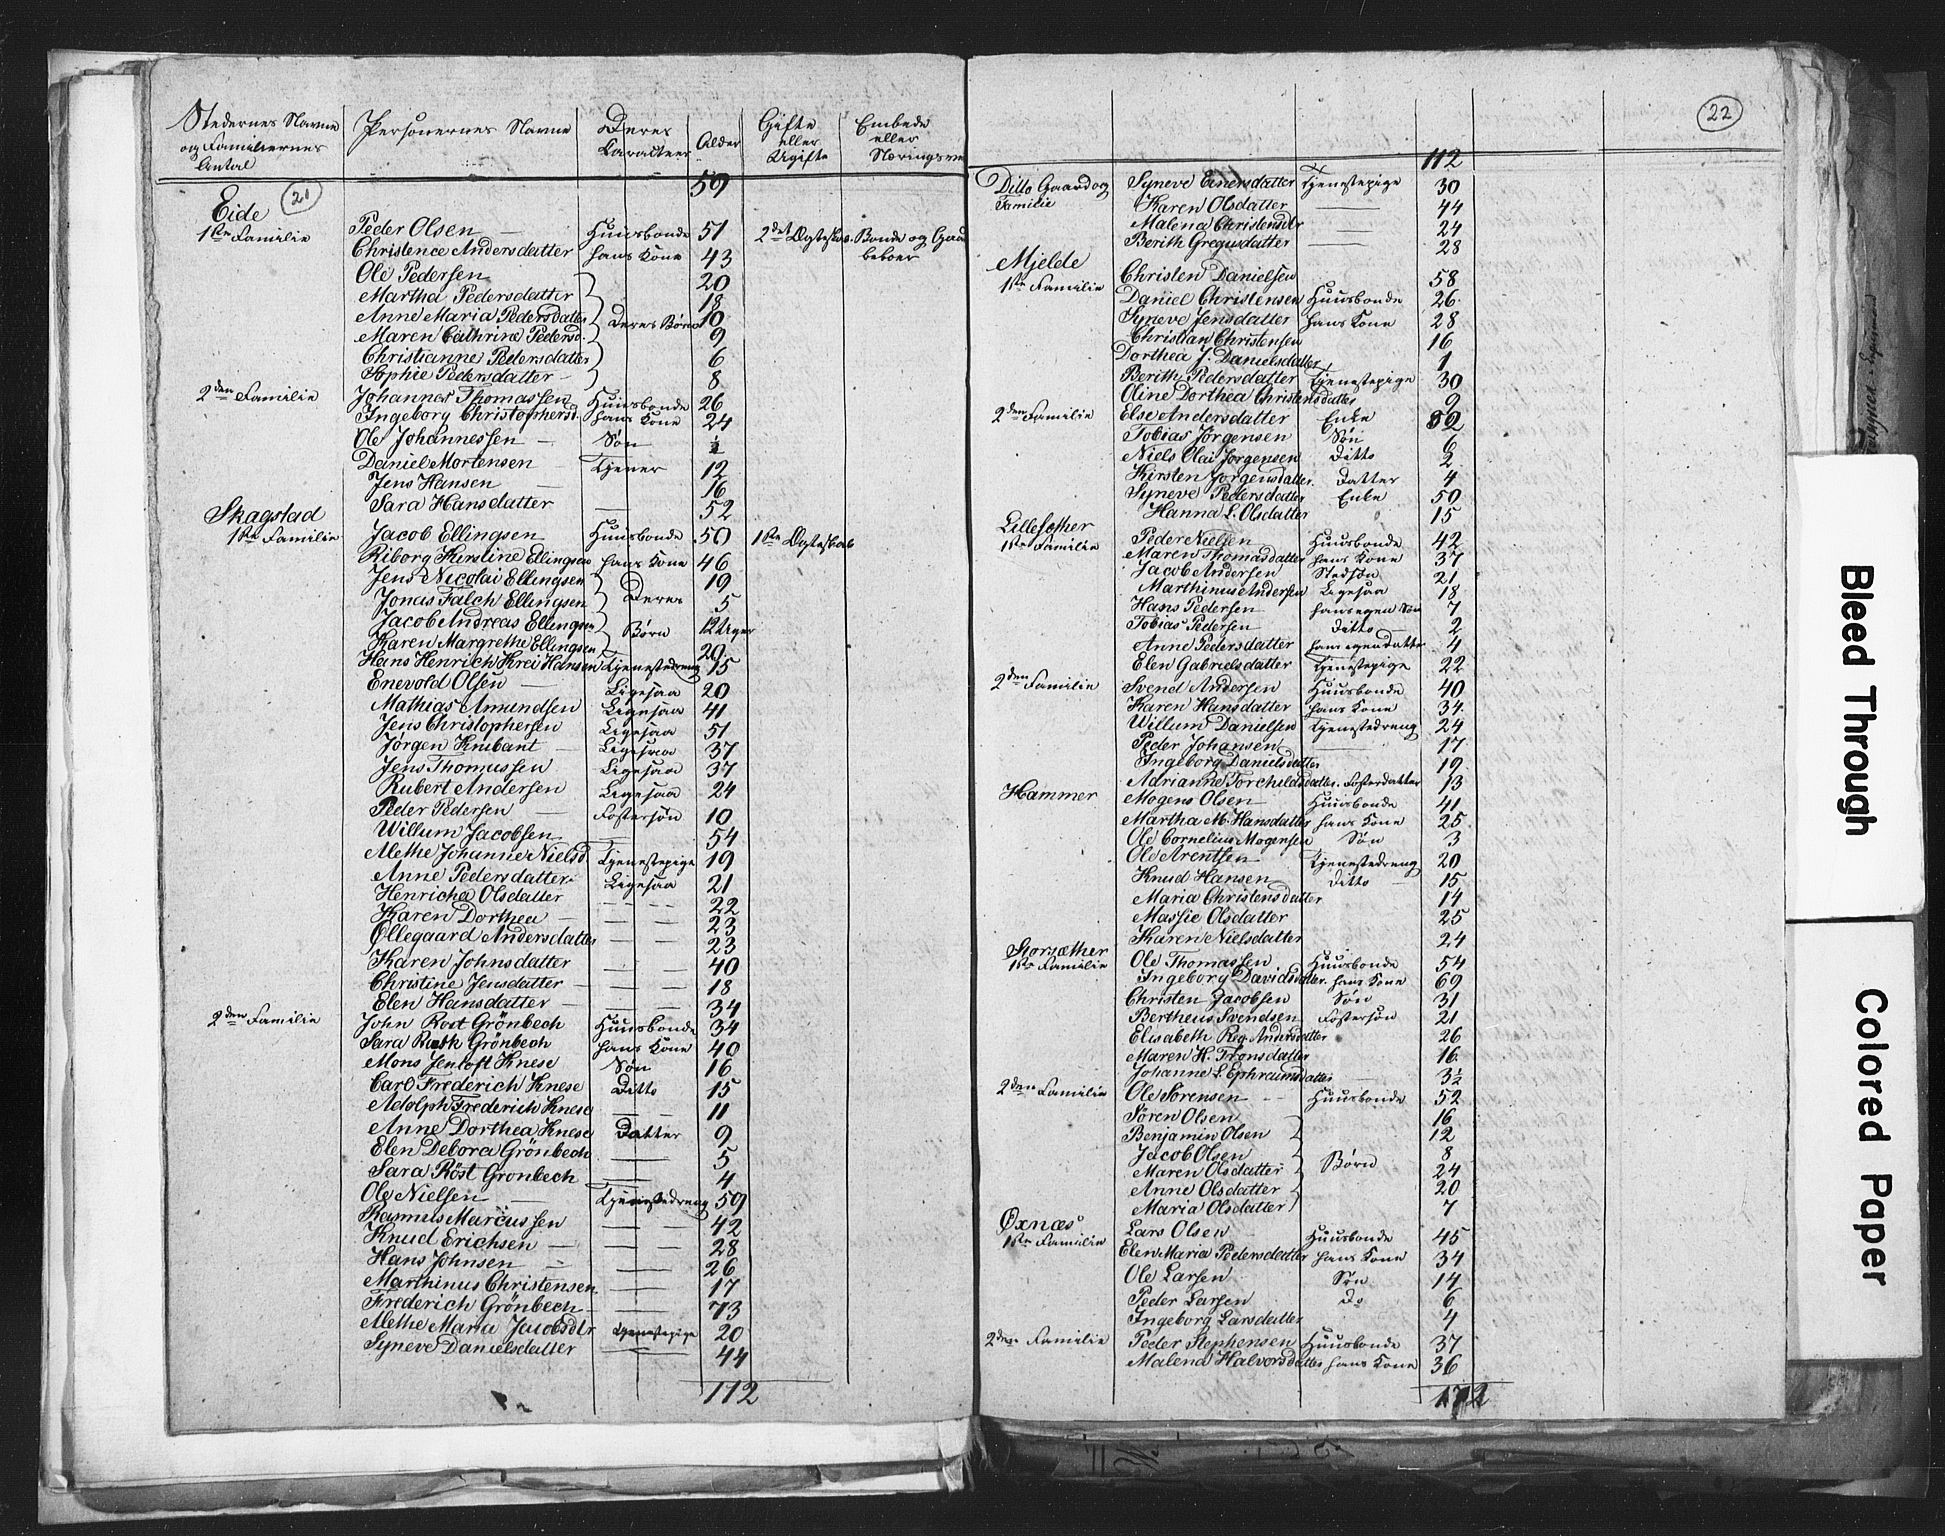 Stedernes Navne og Familiernes Antal | Personernes Navne | Deres Caracteer | Alder | Gifte eller Ugifte | Embede eller Næringsve
59
21
Eide
1ste Familie Peder Olsen — Huusbonde 51 2det Ægteskab. Bonde og Gaa
beboer
Christence Andersdatter hans Kone 43
Ole Pedersen 20
Martha Pedersdatter 18
Anne Maria Pedersdatter Deres Børn 10
Maren Cathrine Pedersd. 9
Christianne Pedersdatter 6
Sophie Pedersdatter 8
2den Familie Johannes Thomassen Huusbonde 26
Ingeborg Christophersd. hans Kone 24
Ole Johannessen — Søn ½
Daniel Mortensen — Tjener 12
Jens Hansen — 16
Sara Hansdatter — 52
Skagstad
1ste Familie Jacob Ellingsen Huusbonde 50 1ste Ægteskab
Riborg Kirstine Ellingsen hans Kone 46
Jens Nicolai Ellingsen 19
Jonas Falch Ellingsen Deres 5
Jacob Andreas Ellingsen Børn 12 Uger
Karen Margrethe Ellingsen 20
Hans Henrich Krei Hansen Tjenestedreng 15
Enevold Olsen — Ligesaa 20
Mathias Amundsen Ligesaa 41
Jens Christophersen Ligesaa 51
Jørgen Knibant — Ligesaa 37
Jens Thomassen Ligesaa 37
Rubert Andersen Ligesaa 24
Peder Pedersen — Fostersøn 10
Willum Jacobsen — 54
Alethe Johanne Nielsd. Tjenestepige 19
Anne Pedersdatter Ligesaa 21
Henricha Olsdatter — — 22
Karen Dorthea — — — 23
Øllegaard Andersdatter — — 23
Karen Johnsdatter — — 40
Christine Jensdatter — — — 18
Elen Hansdatter — — — 34
2den Familie John Rost Grönbech Huusbonde 34
Sara Grönbech hans Kone 40
Mons Jentoft Knese Søn 16
Carl Frederich Knese Ditto 15
Adolph Frederich Knese — — 11
Anne Dorthea Knese Datter 9
Elen Debora Grönbech — 5
Sara Röst Gronbech — 4
Ole Nielsen — Tjenestedreng 59
Rasmus Marcussen — — 42
Knud Erichsen — — — 28
Hans Johnsen — — 26
Marthinus Christensen — 17
Frederich Grönbech — 73
Alethe Maria Jacobsdtr Tjenestepige 20
Syneve Danielsdatter — 44
112
22
112
Ditto Gaard og Familie Syneve Einersdatter Tjenestepige 30
Karen Olsdatter — 44
Malena Christensdtr — 24
Berith Gregusdatter — 28
Mjelde
1ste Familie Christen Danielsen 58
Daniel Christensen Huusbonde 26
Syneve Jensdatter hans Kone 28
Christian Christensen 16
Dorthea J. Danielsdatter 1
Berith Pedersdatter Tjenestepige 30
Oline Dorthea Christensdatter 9
2den Familie Else Andersdatter Enke 52
Tobias Jörgensen Søn 6
Niels Olai Jorgensen Ditto 2
Kirsten Jorgensdatter. Datter 4
Syneve Pedersdatter Enke 50
Hanna L. Olsdatter 15
Lillesæther
1ste Familie Peder Nielsen Huusbonde 42
Maren Thomasdatter hans Kone 37
Jacob Andersen Stedsøn 21
Marthinus Andersen Ligesaa 18
Hans Pedersen hans egen Søn 7
Tobias Pedersen Ditto — 2
Anne Pedersdatter hans egen datter 4
Elen Gabrielsdatter Tjenestepige 22
2den Familie Svend Andersen Huusbonde 40
Karen Hansdatter hans Kone 34
Willum Danielsen Tjenestedreng 24
Peder Johansen 17
Ingeborg Danielsdatter 19
Adrianne Torchildsdatter. Fosterdatter 13
Hammer Mogens Olsen — Huusbonde 41
Martha M. Hansdatter hans Kone 25
Ole Cornelius Mogensen Søn 3
Ole Arentsen Tjenestedreng 20
Knud Hansen — Ditto — 15
Maria Christensdatter 14
Massie Olsdatter 25
Karen Nielsdatter 24
Storsæther
1ste Familie Ole Thomassen Huusbonde 54
Ingeborg Davidsdatter. hans Kone 69
Christen Jacobsen Søn 31
Bertheus Svendsen Fostersøn 21
Elisabeth Reg. Andersdatter 26
Maren H. Tronsdatter 16
Johanne L. Ephraimsdatter 3½
2den Familie Ole Sørensen — Huusbonde 52
Søren Olsen 16
Benjamin Olsen 12
Jacob Olsen 8
Maren Olsdatter Børn 24
Anne Olsdatter 20
Maria Olsdatter 7
Øxnæs
1ste Familie Lars Olsen — Huusbonde 45
Elen Maria Pedersdatter hans Kone 34
Ole Larsen Søn 14
Peder Larsen Do 6
Ingeborg Larsdatter 4
2den Familie Peder Stephensen Huusbonde 37
Malena Halvorsdatter hans Kone 36
172
Bleed Through
Colored Paper